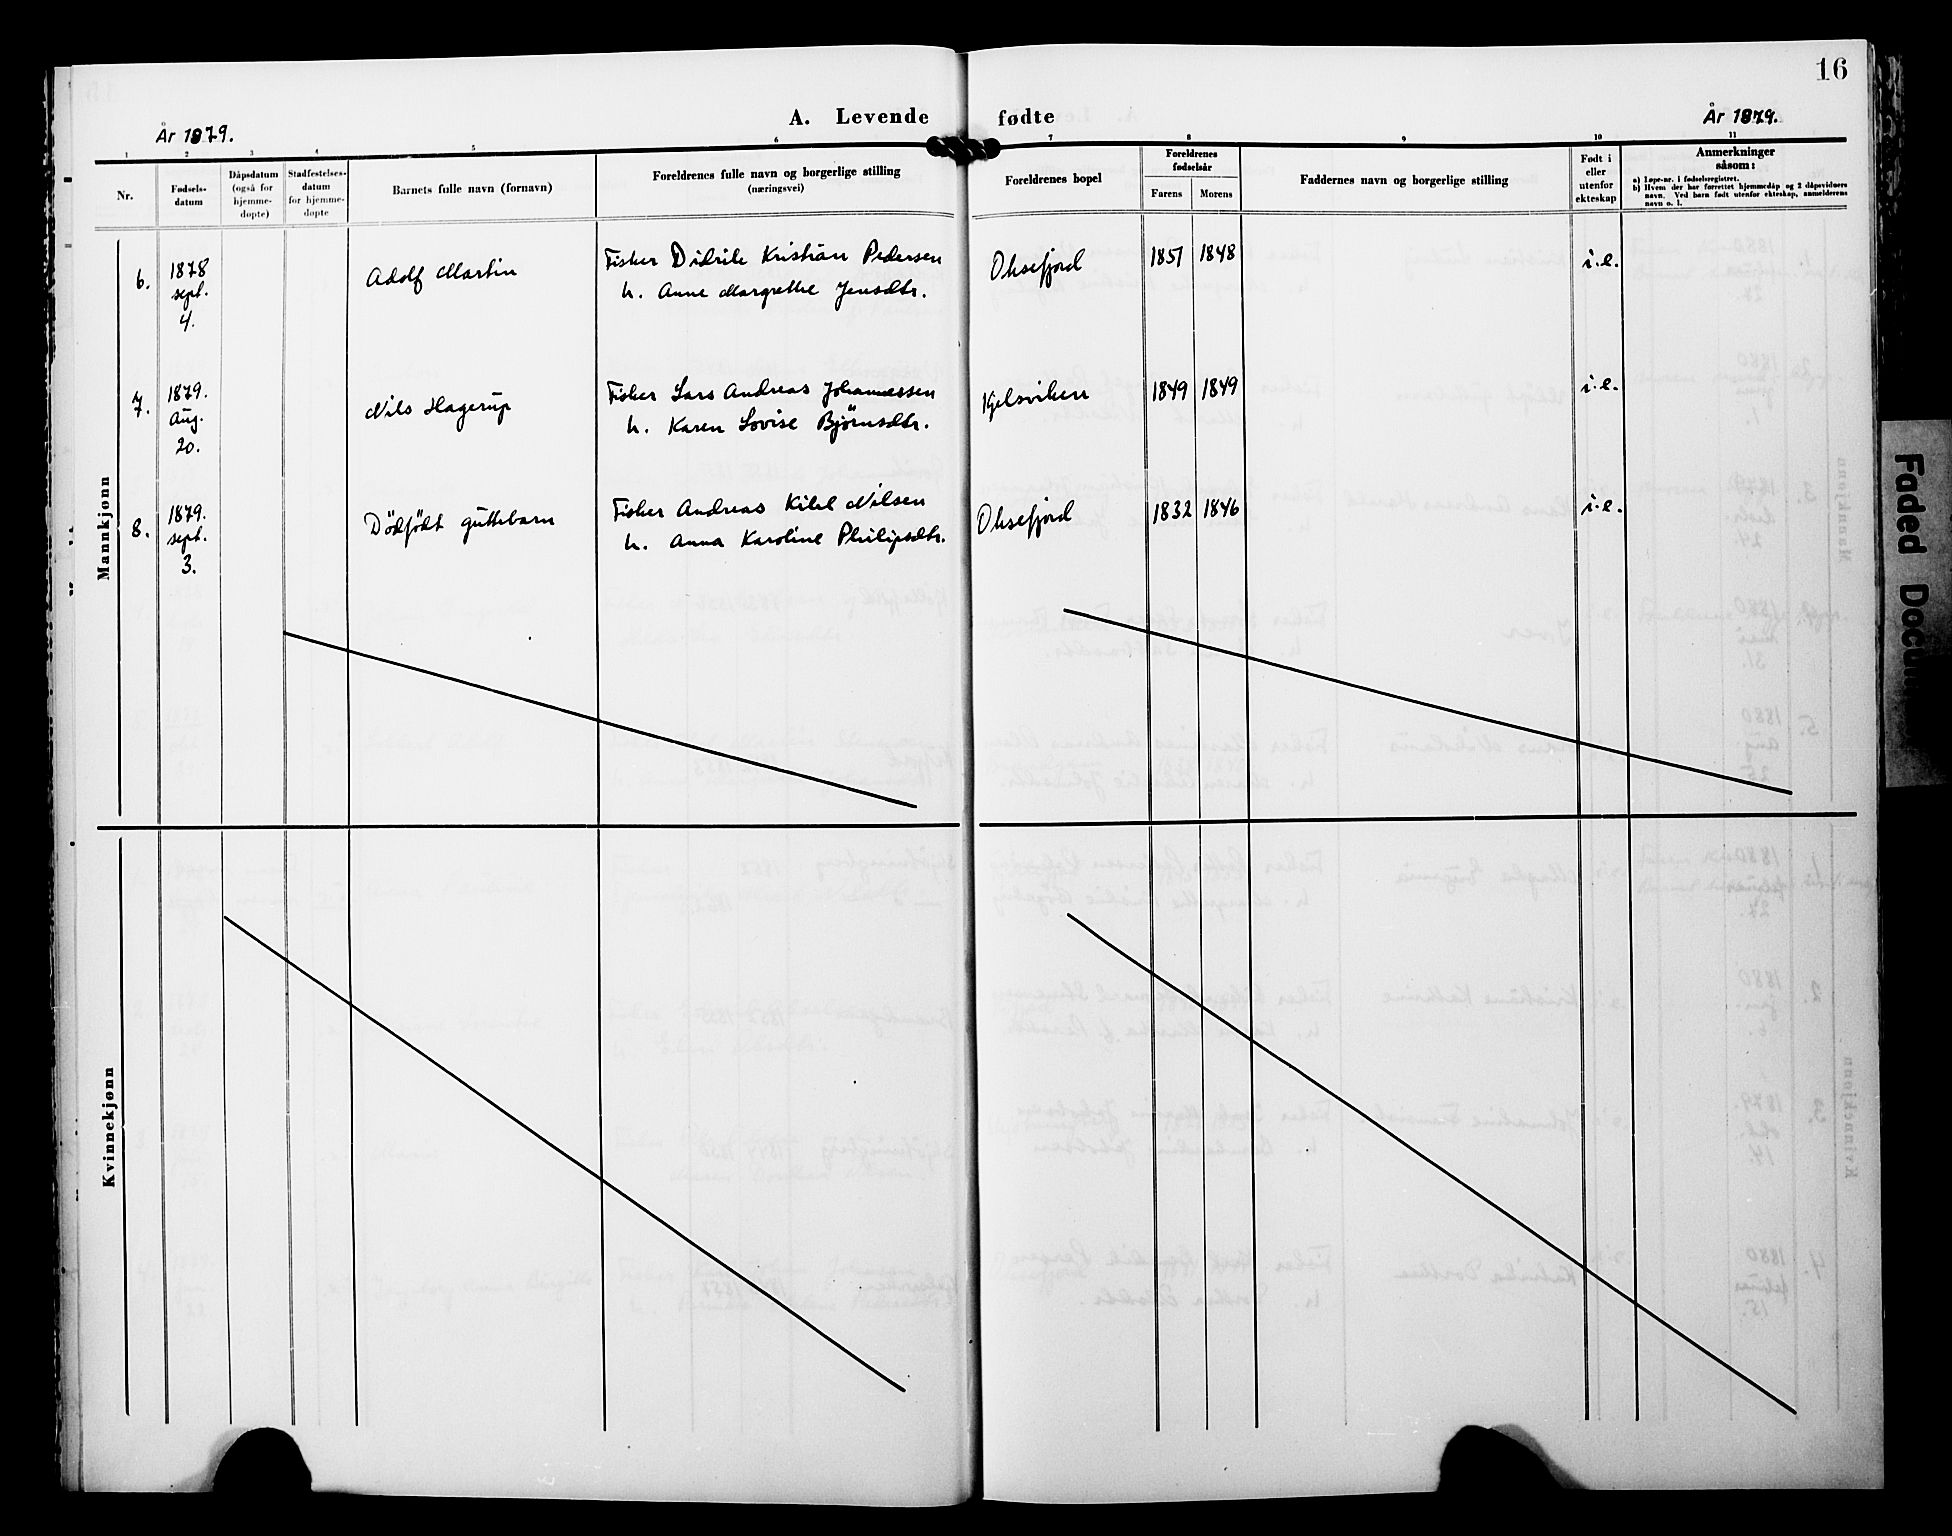 16
A. Levende fødte
År 1879.
År 1879.
1 2 3 4 5 6 7 8 9 10 11
Nr.
Fødsels-
datum
Dåpsdatum
(også for
hjemme-
døpte)
Stadfestelses-
datum
for hjemme-
døpte
Barnets fulle navn (fornavn)
Foreldrenes fulle navn og borgerlige stilling
(næringsvei)
Foreldrenes bopel
Foreldrenes
fødselsår
Farens Morens
Faddernes navn og borgerlige stilling
Født i
eller
utenfor
ekteskap
Anmerkninger
såsom:
a) Løpe-nr. i fødselsregistret.
b) Hvem der har forrettet hjemmedåp og 2 dåpsvidners
navn. Ved barn født utenfor ekteskap, anmelderens
navn o. l.
Mannkjønn
6. 1878 sept. 4. Adolf Martin Fisker Didrik Kristian Pedersen Oksefjord 1851 1848 i.e.
h. Anne Margrethe Jensdtr.
7. 1879. Aug. 20. Nils Hagerup Fisker Lars Andreas Johannessen Kjelsviken 1849 1849 i.e.
h. Karen Lovise Bjørnsdtr.
8. 1879. sept. 3. Dödfödt guttebarn Fisker Andreas Kilel Nilsen Oksefjord 1832 1846 i.e.
h. Anna Karoline Philipsdtr.
Kvinnekjønn
Faded Docu